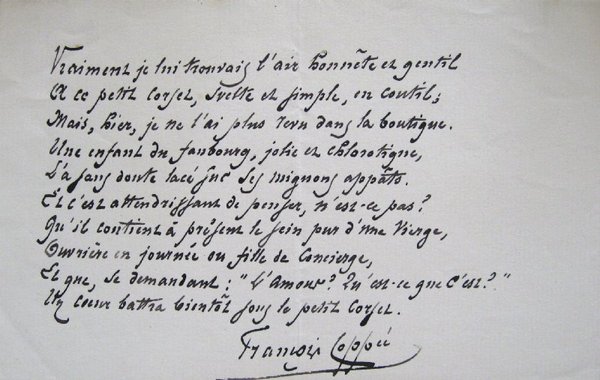 Vraiment je lui trouvais l'air honnête et gentil
A ce petit corset, svelte et simple, en coutil;
Mais, hier, je ne l'ai plus revu dans la boutique.
Une enfant du faubourg, jolie et chlorotique,
L'a sans doute lacé sur ses mignons appâts.
Et c'est attendrissant de penser, n'est-ce pas?
Qu'il contient à présent le sein pur d'une Vierge,
Ouvrière en journée ou fille de Concierge,
Et que, se demandant: "L'Amour? Qu'est-ce que c'est?"
Un cœur battra bientôt sous le petit Corset.
François Coppée